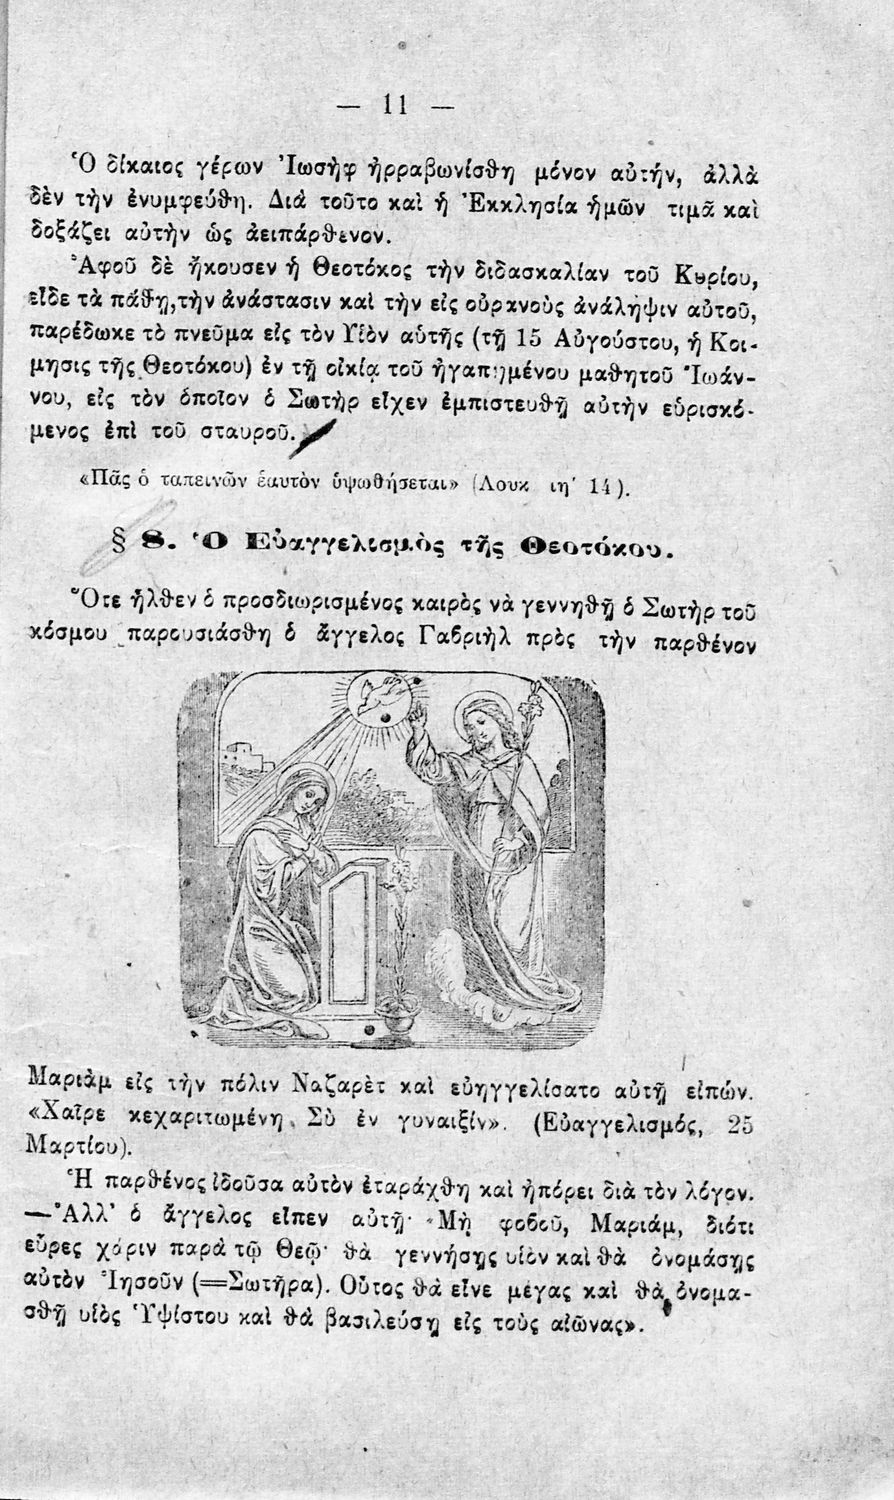 — 11 —
Ὁ δίκαιος γέρων Ἰωσὴφ ἠρραβωνίσθη μόνον αὐτήν, ἀλλὰ
δὲν τὴν ἐνυμφεύθη. Διὰ τοῦτο καὶ ἡ Ἐκκλησία ἡμῶν τιμᾷ καὶ
δοξάζει αὐτὴν ὡς ἀειπάρθενον.
Ἀφοῦ δὲ ἤκουσεν ἡ Θεοτόκος τὴν διδασκαλίαν τοῦ Κυρίου,
εἶδε τὰ πάθη, τὴν ἀνάστασιν καὶ τὴν εἰς οὐρανοὺς ἀνάληψιν αὐτοῦ,
παρέδωκε τὸ πνεῦμα εἰς τὸν Υἱὸν αὑτῆς (τῇ 15 Αὐγούστου, ἡ Κοί-
μησις τῆς Θεοτόκου) ἐν τῇ οἰκίᾳ τοῦ ἠγαπημένου μαθητοῦ Ἰωάν-
νου, εἰς τὸν ὁποῖον ὁ Σωτὴρ εἶχεν ἐμπιστευθῆ αὐτὴν εὑρισκό-
μενος ἐπὶ τοῦ σταυροῦ.
«Πᾶς ὁ ταπεινῶν ἑαυτὸν ὑψωθήσεται» (Λουκ ιη΄ 14).
§ 8. Ὁ Εὐαγγελισμὸς τῆς Θεοτόκου.
Ὅτε ἦλθεν ὁ προσδιωρισμένος καιρὸς νὰ γεννηθῇ ὁ Σωτὴρ τοῦ
κόσμου παρουσιάσθη ὁ ἄγγελος Γαβριὴλ πρὸς τὴν παρθένον
Μαριὰμ εἰς τὴν πόλιν Ναζαρὲτ καὶ εὐηγγελίσατο αὐτῇ εἰπών.
«Χαῖρε κεχαριτωμένη, Σὺ ἐν γυναιξίν». (Εὐαγγελισμός, 25
Μαρτίου).
Ἡ παρθένος ἰδοῦσα αὐτὸν ἐταράχθη καὶ ἠπόρει διὰ τὸν λόγον.
—Ἀλλ' ὁ ἄγγελος εἶπεν αὐτῇ· «Μὴ φοβοῦ, Μαριάμ, διότι
εὗρες χάριν παρὰ τῷ Θεῷ· θὰ γεννήσῃς υἱὸν καὶ θὰ ὀνομάσῃς
αὐτὸν Ἰησοῦν (=Σωτῆρα). Οὗτος θὰ εἶνε μέγας καὶ θὰ ὀνομα-
σθῇ υἱὸς Ὑψίστου καὶ θὰ βασιλεύσῃ εἰς τοὺς αἰῶνας».